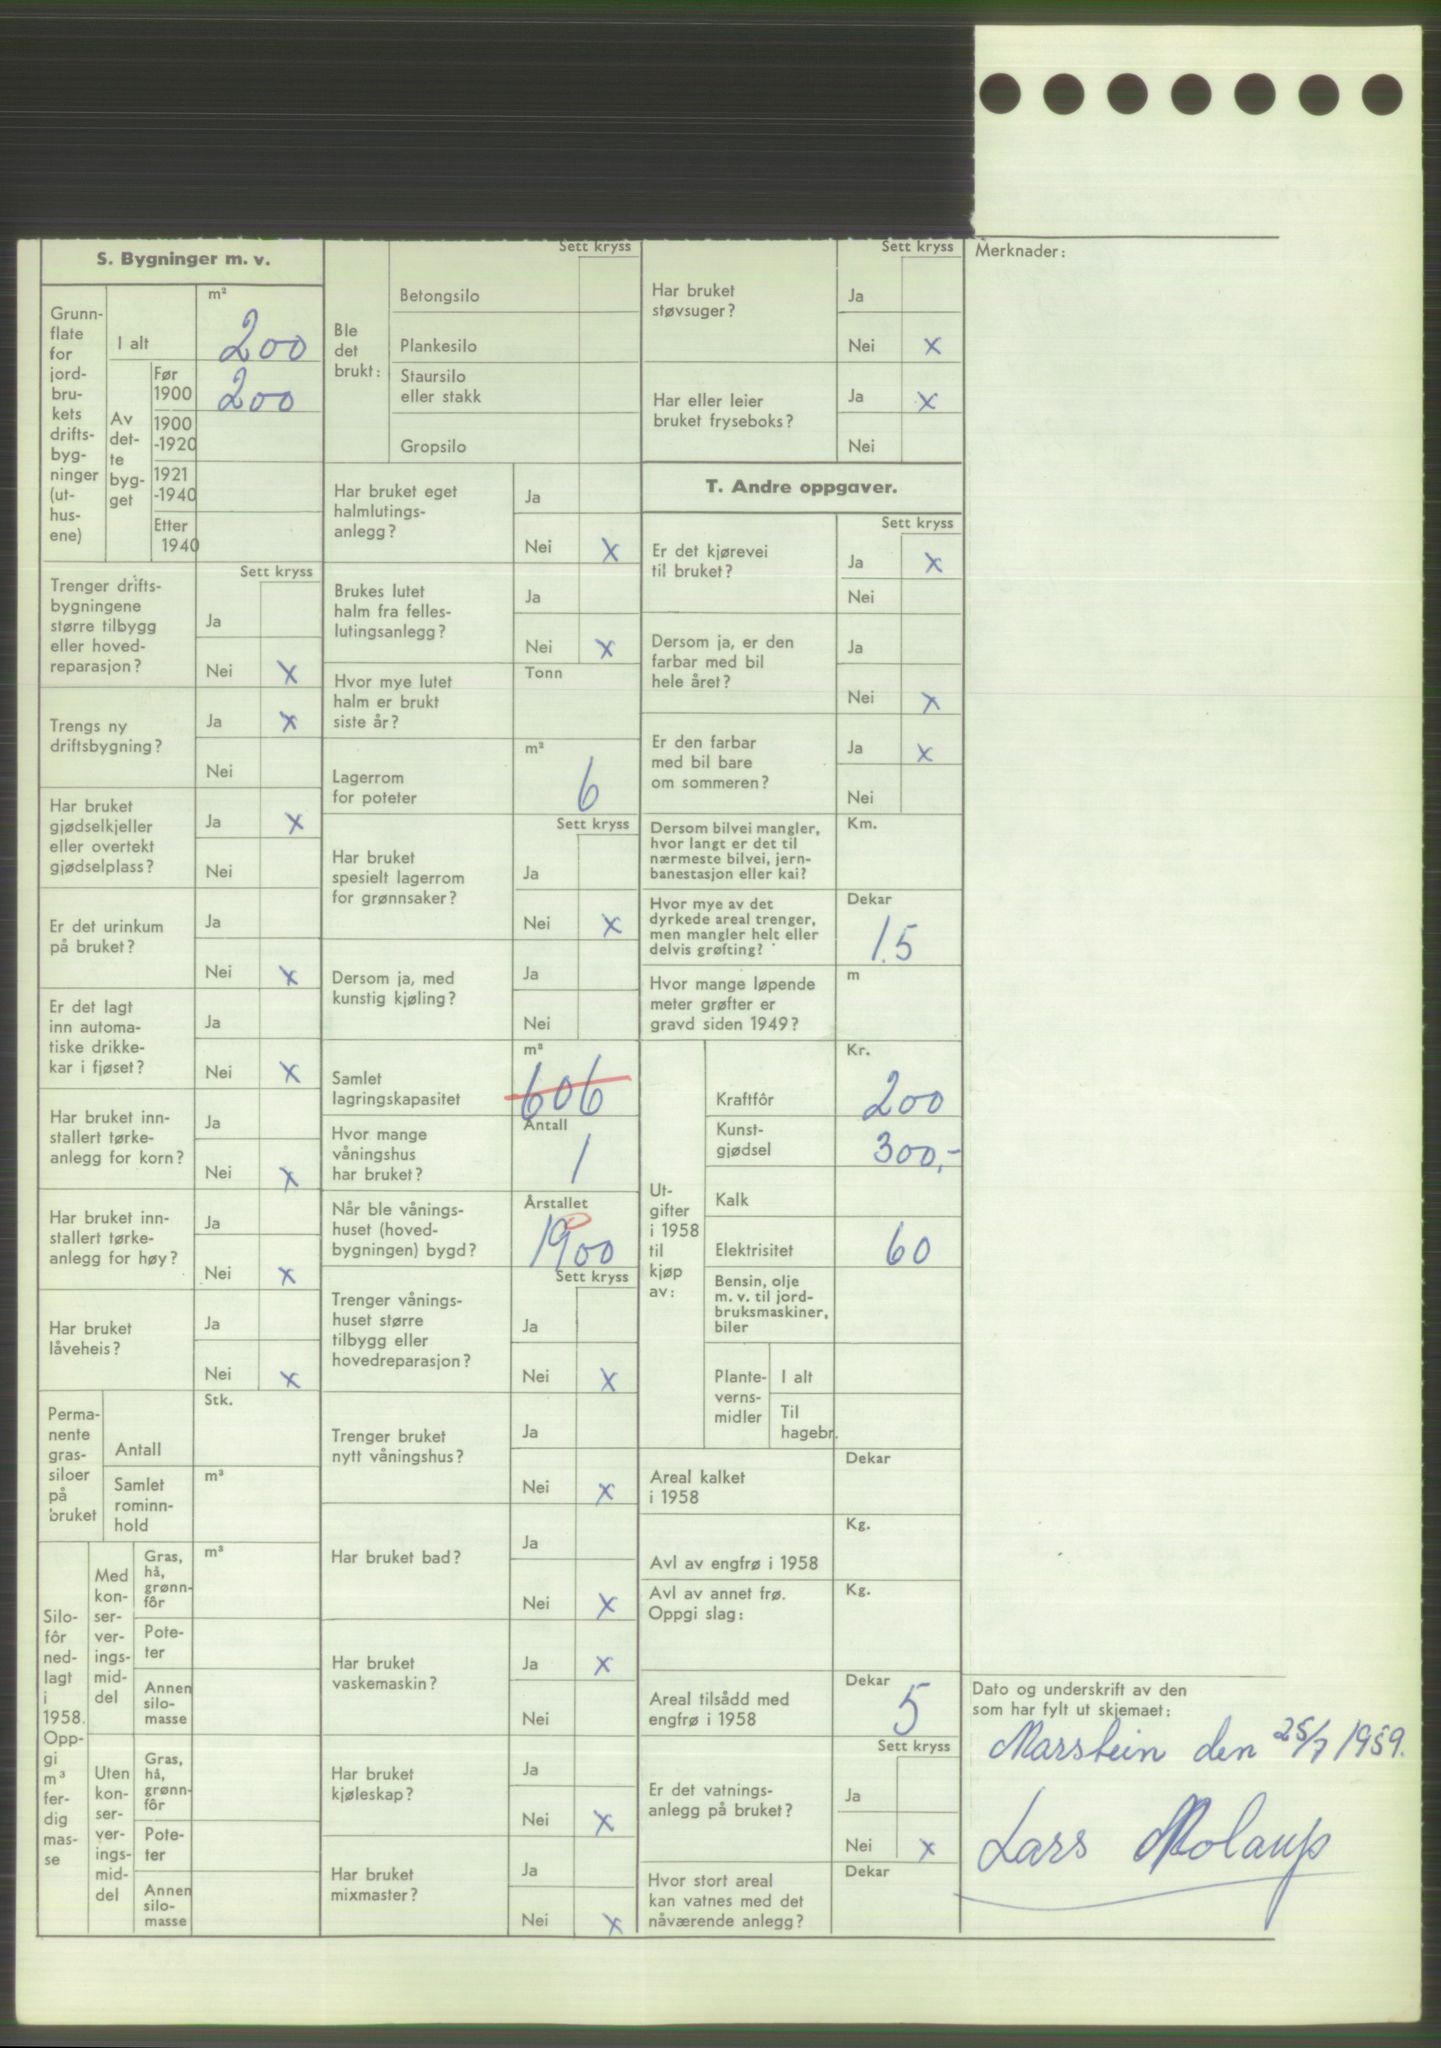 S. Bygninger m. v.
Grunn-
flate
for
jord-
bru-
kets
drifts-
byg-
ninger
(ut-
hus-
ene)
I alt
m²
200
Av
det-
te
byg-
get
Før
1900
200
1900
-1920
1921
-1940
Etter
1940
Sett kryss
Trenger drifts-
bygningene
større tilbygg
eller hoved-
reparasjon?
Ja
Nei x
Trengs ny
driftsbygning?
Ja x
Nei
Har bruket
gjødselkjeller
eller overtekt
gjødselplass?
Ja x
Nei
Er det urinkum
på bruket?
Ja
Nei x
Er det lagt
inn automa-
tiske drikke-
kar i fjøset?
Ja
Nei x
Har bruket inn-
stallert tørke-
anlegg for korn?
Ja
Nei x
Har bruket inn-
stallert tørke-
anlegg for høy?
Ja
Nei x
Har bruket
låveheis?
Ja
Nei x
Perma-
nente
gras-
siloer
på
bruket
Antall
Stk.
Samlet
rominn-
hold
m³
Silo-
fôr
ned-
lagt
i
1958.
Opp-
gi
m³
fer-
dig
mas-
se
Med
kon-
ser-
ver-
ings-
mid-
del
Gras,
hå,
grønn-
fôr
m³
Pote-
ter
Annen
silo-
masse
Uten
kon-
ser-
ver-
ings-
mid-
del
Gras,
hå,
grønn-
fôr
Pote-
ter
Annen
silo-
masse
Sett kryss
Ble
det
brukt:
Betongsilo
Plankesilo
Staursilo
eller stakk
Gropsilo
Har bruket eget
halmlutings-
anlegg?
Ja
Nei x
Brukes lutet
halm fra felles-
lutingsanlegg?
Ja
Nei x
Hvor mye lutet
halm er brukt
siste år?
Tonn
Lagerrom
for poteter
m²
6
Sett kryss
Har bruket
spesielt lagerrom
for grønnsaker?
Ja
Nei x
Dersom ja, med
kunstig kjøling?
Ja
Nei
Samlet
lagringskapasitet
m³
606
Hvor mange
våningshus
har bruket?
Antall
1
Når ble vånings-
huset (hoved-
bygningen) bygd?
Årstallet
1900
Sett kryss
Trenger vånings-
huset større
tilbygg eller
hovedreparasjon?
Ja
Nei x
Trenger bruket
nytt våningshus?
Ja
Nei x
Har bruket bad?
Ja
Nei x
Har bruket
vaskemaskin?
Ja x
Nei
Har bruket
kjøleskap?
Ja
Nei x
Har bruket
mixmaster?
Ja
Nei x
Sett kryss
Har bruket
støvsuger?
Ja
Nei x
Har eller leier
bruket fryseboks?
Ja x
Nei
T. Andre oppgaver.
Sett kryss
Er det kjørevei
til bruket?
Ja x
Nei
Dersom ja, er den
farbar med bil
hele året?
Ja
Nei x
Er den farbar
med bil bare
om sommeren?
Ja x
Nei
Dersom bilvei mangler,
hvor langt er det til
nærmeste bilvei, jern-
banestasjon eller kai?
Km.
Hvor mye av det
dyrkede areal trenger,
men mangler helt eller
delvis grøfting?
Dekar
1.5
Hvor mange løpende
meter grøfter er
gravd siden 1949?
m
Ut-
gifter
i 1958
til
kjøp
av:
Kraftfôr
Kr.
200
Kunst-
gjødsel
300,-
Kalk
Elektrisitet
60
Bensin, olje
m. v. til jord-
bruksmaskiner,
biler
Plante-
verns-
midler
I alt
Til
hagebr.
Areal kalket
i 1958
Dekar
Avl av engfrø i 1958
Kg.
Avl av annet frø.
Oppgi slag:
Kg.
Areal tilsådd med
engfrø i 1958
Dekar
5
Sett kryss
Er det vatnings-
anlegg på bruket?
Ja
Nei x
Hvor stort areal
kan vatnes med det
nåværende anlegg?
Dekar
Merknader:
Dato og underskrift av den
som har fylt ut skjemaet:
Marstein den 25/7 1959.
Lars